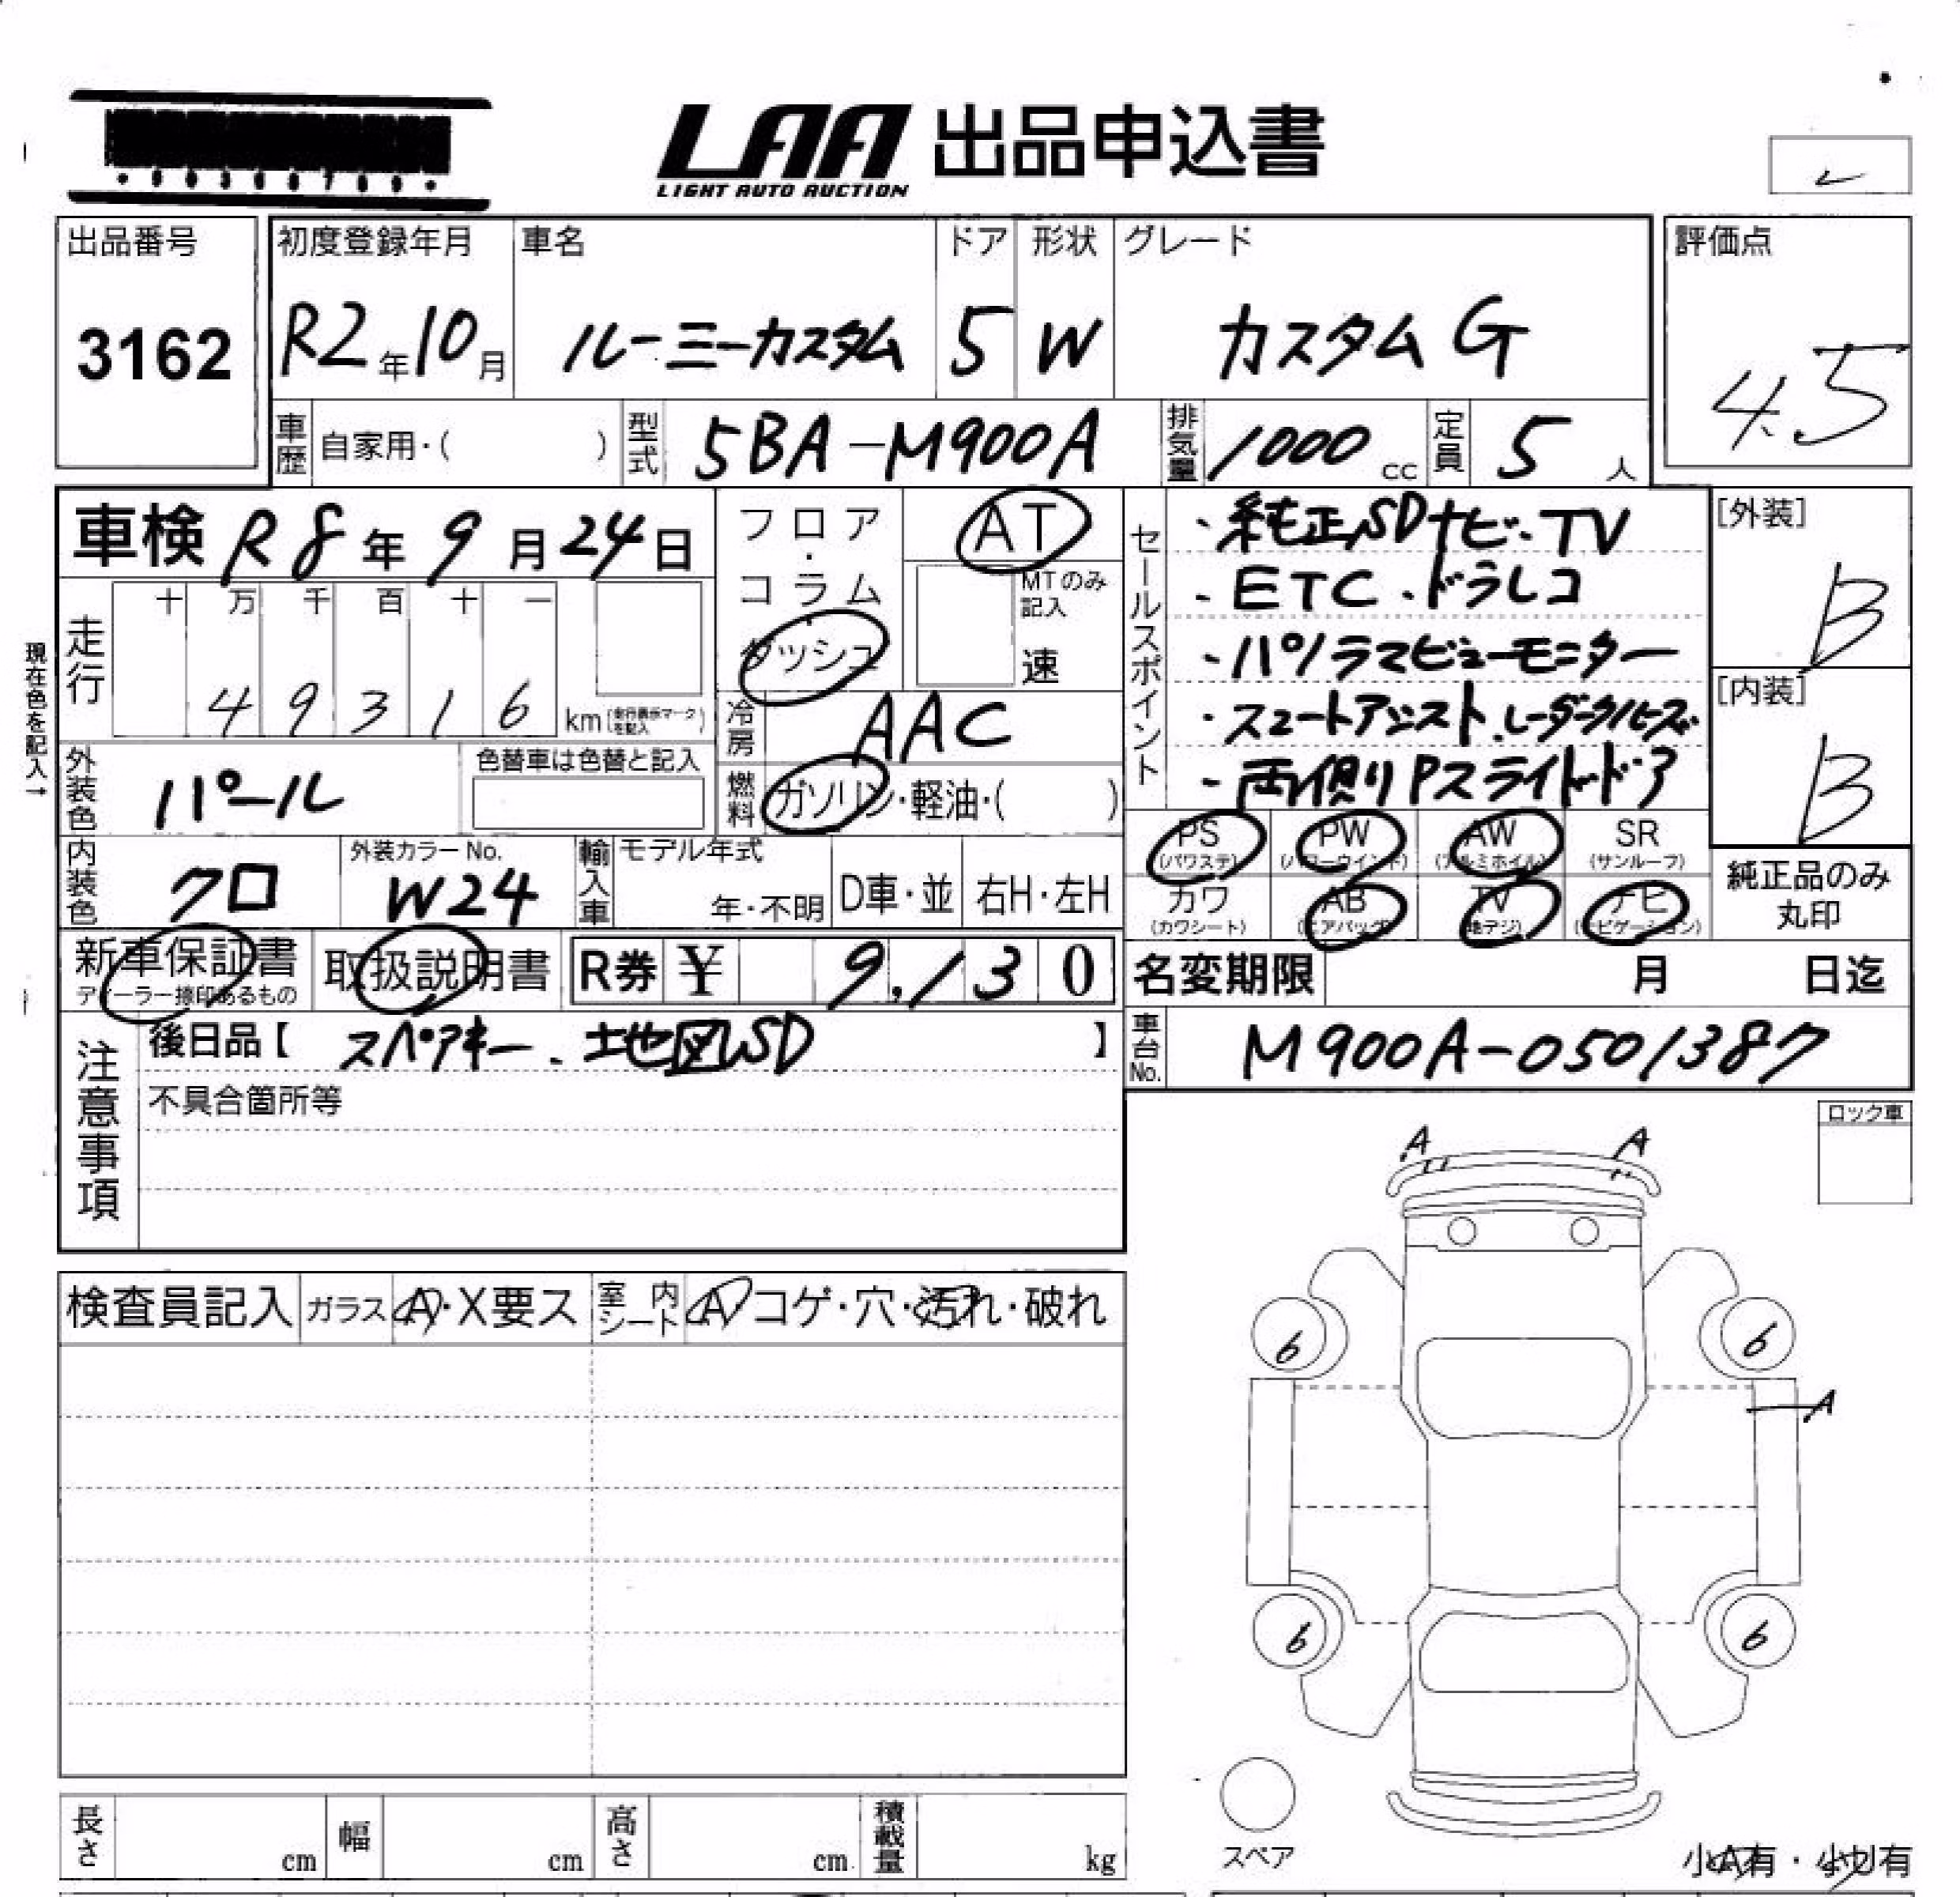 LAA 出品申込書
LIGHT AUTO AUCTION
出品番号 初度登録年月 車名 ドア 形状 グレード 評価点
3162 R2年10月 ルーミーカスタム 5 W カスタムG 4.5
車歴 自家用・( ) 型式 5BA-M900A 排気量 1000 cc 定員 5 人
車検 R8年9月24日
フロア・コラム・ダッシュ
AT
MTのみ記入
速
現在色を記入→
走行 十万千百十一
49316 km
冷房 AAC
外装色 パール
色替車は色替と記入
燃料 ガソリン・軽油・( )
内装色 クロ
外装カラーNo.
W24
輸入車 モデル年式
年・不明 D車・並 右H・左H
新車保証書
ディーラー捺印あるもの
取扱説明書
R券 ¥ 9,130
セールスポイント
・純正SDナビ・TV
・ETC・ドラレコ
・パノラマビューモニター
・スマートアシスト、レーダークルーズ
・両側Pスライドドア
[外装]
B
[内装]
B
PS PW AW SR
(パワステ) (パワーウインド) (アルミホイル) (サンルーフ)
カワ AB TV ナビ
(カワシート) (エアバッグ) (地デジ) (ナビゲーション)
純正品のみ
丸印
名変期限 月 日迄
車台No. M900A-0501387
注意事項
後日品【 スペアキー、地図SD 】
不具合箇所等
ロック車
A A
検査員記入 ガラス A・X要ス 室内シート A コゲ・穴・汚れ・破れ
6 6
A
6 6
スペア
小A有・小U有
長さ cm 幅 cm 高さ cm 積載量 kg